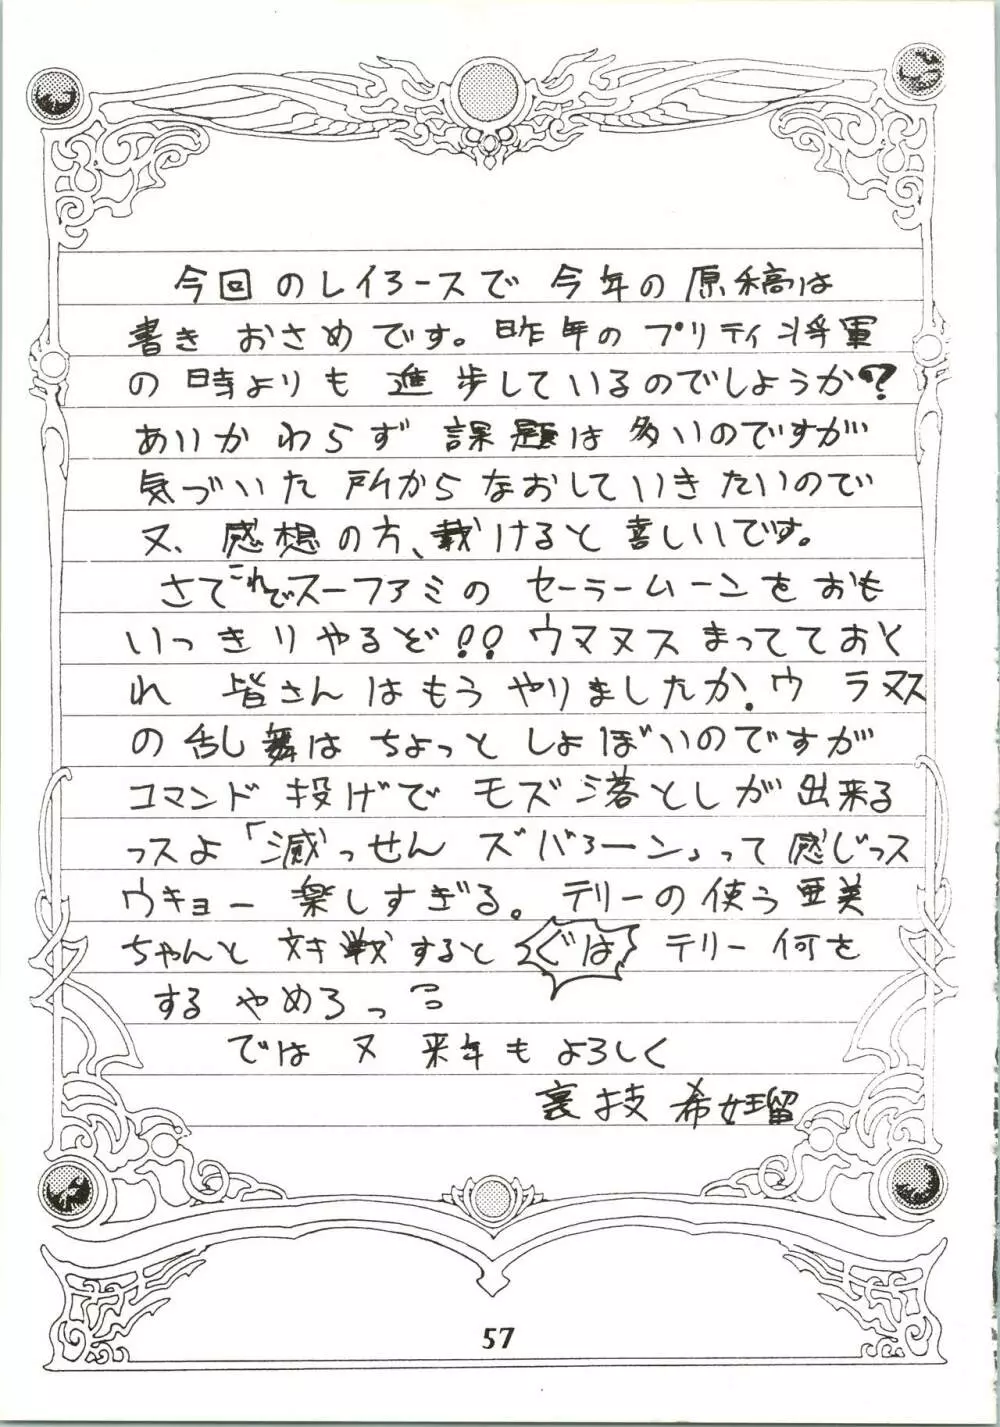 今回のレイろースで今年の原稿は
書きおさめです。昨年のプリティ将軍
の時よりも進歩しているのでしようか?
あいかわらず課題は多いのですが
気づいた所からなおしていきたいので
又、感想の方、載けると喜しいです。
さてこれでスーファミのセーラームーンをおも
いっきりやるぞ!!ウマヌスまってておく
れ 皆さんはもうやりましたか.ウラヌス
の乱舞はちょっとしょぼいのですが
コマンド投げでモズ落としが出来る
っスよ「滅っせんズバろーン」って感じっス
ウキョー楽しすぎる。テリーの使う亜美
ちゃんと対戦すると ぐは テリー何を
するやめろっ
では又来年もよろしく
裏技 希妊瑠
57